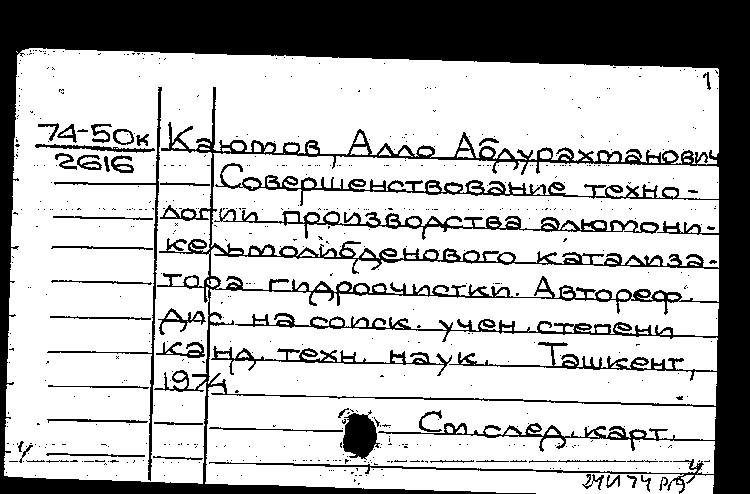 1
74-50к
2616
Каютов, Алло Абдурахманович
Совершенствование техно-
логии производства алюмони-
кельмолибденового катализа-
тора гидроочистки. Автореф.
дис. на соиск. учен. степени
канд. техн. наук. Ташкент,
1974.
См. след. карт.